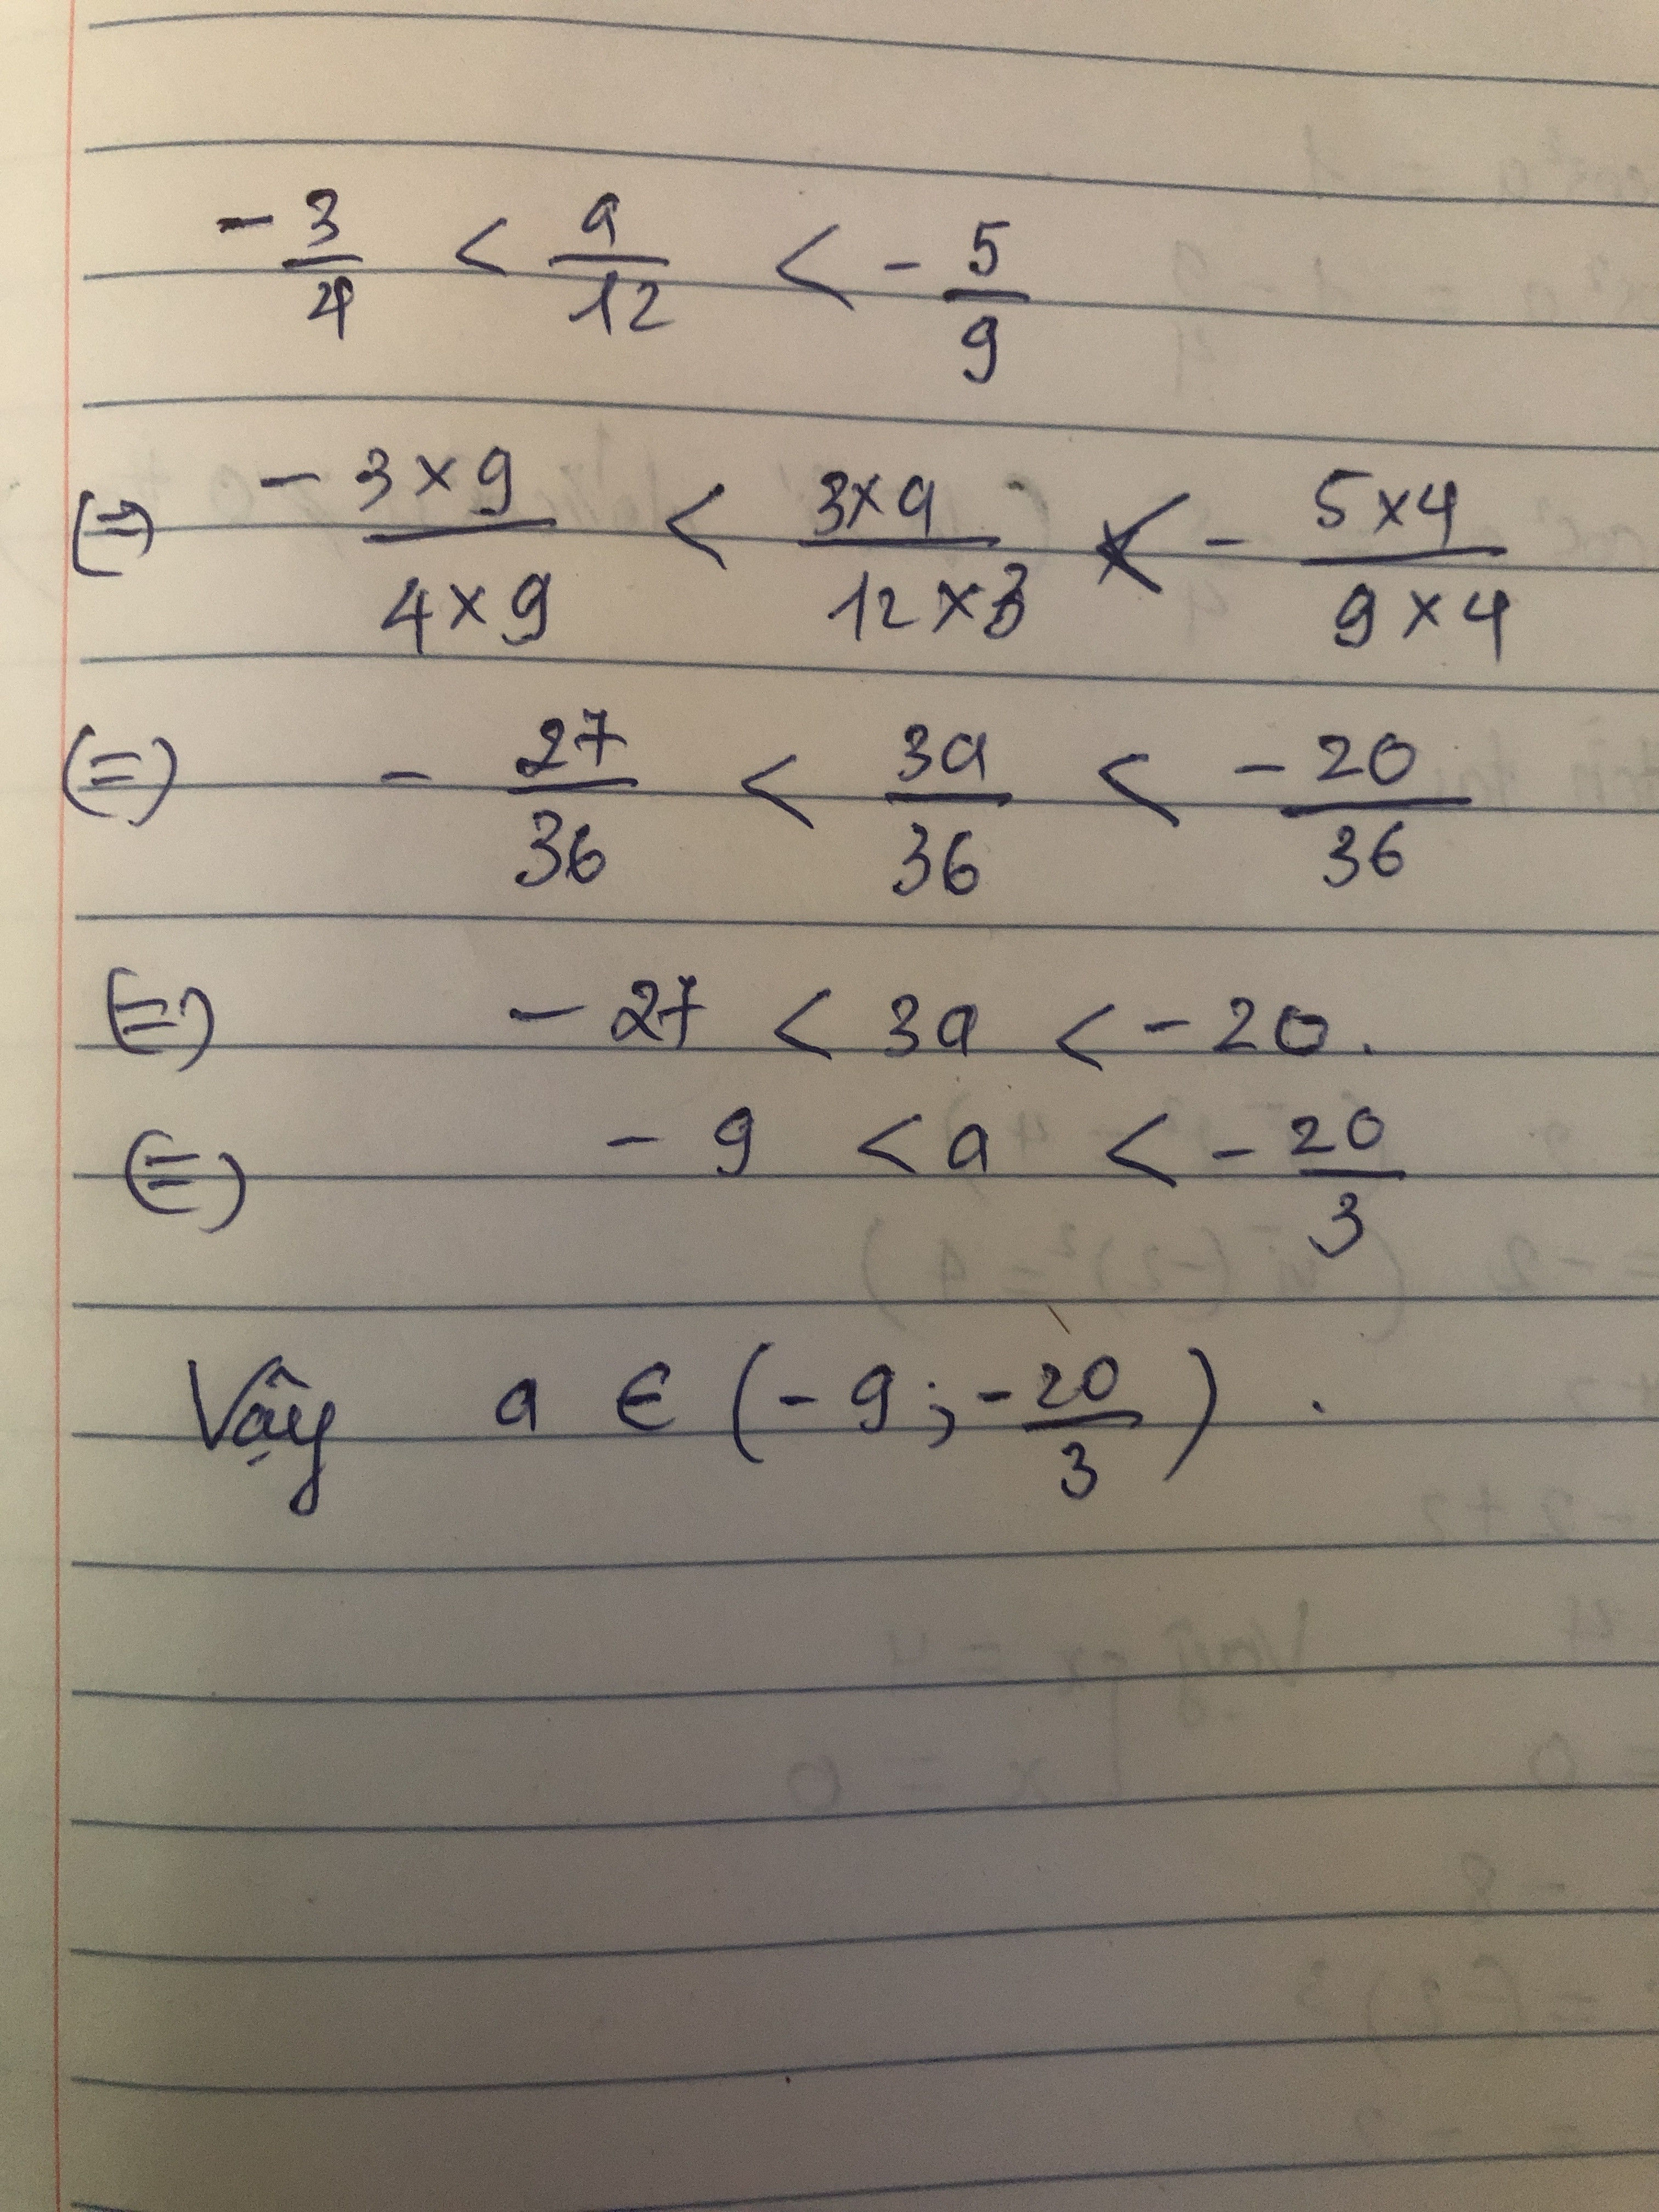 - 3/4 < a/12 < - 5/9
(=) - 3×9/4×9 < 3×a/12×3 < - 5×4/9×4
(=) - 27/36 < 3a/36 < - 20/36
(=) - 27 < 3a < - 20.
(=) - 9 < a < - 20/3
Vậy a ∈ (- 9 ; - 20/3) .